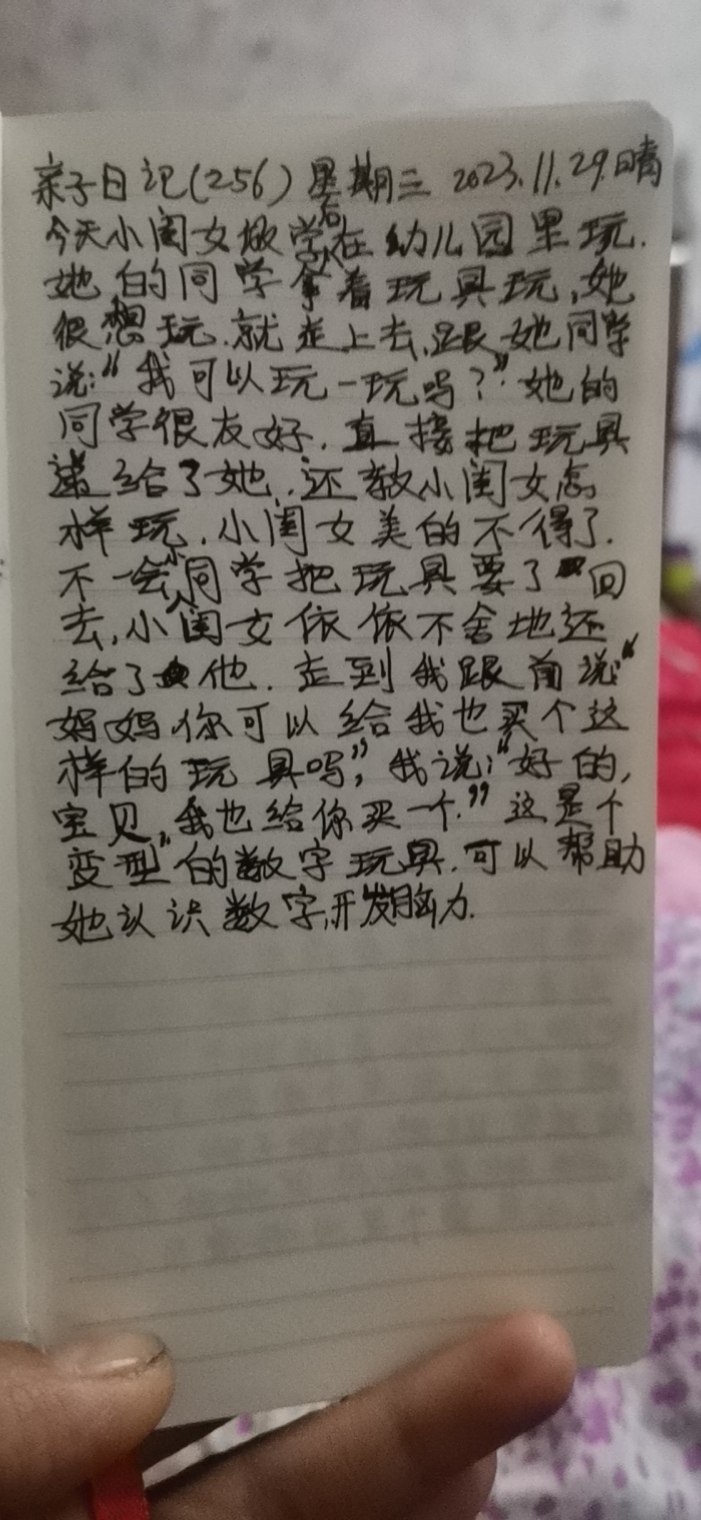 亲子日记(256) 星期三 2023.11.29.晴
今天小闺女放学后在幼儿园里玩.
她的同学拿着玩具玩,她
很想玩.就走上去,跟她同学
说:“我可以玩一玩吗?”她的
同学很友好.直接把玩具
递给了她,还教小闺女怎
样玩.小闺女美的不得了.
不一会,小同学把玩具要了回
去,小闺女依依不舍地还
给了他.走到我跟前说:“
妈妈.你可以给我也买个这
样的玩具吗”,我说:“好的,
宝贝,我也给你买一个.”这是个
“变型”的数字玩具.可以帮助
她认识数字,开发脑力.